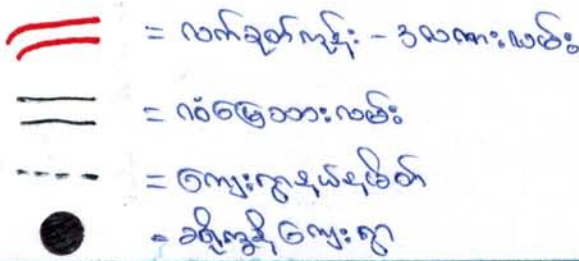 = လက်ခုတ်ကုန်း - ဒလကားလမ်း
= လံမြေသားလမ်း
= ကျေးရွာနယ်နမိတ်
= ခရိုကွန်ကျေးရွာ